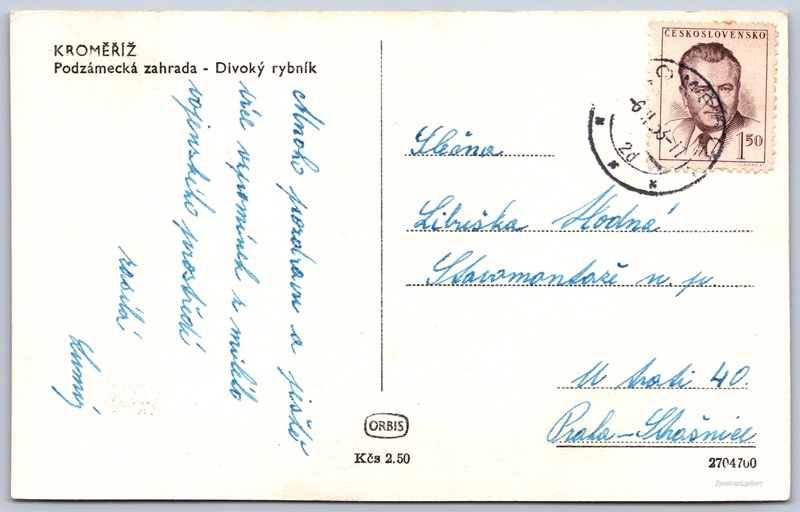 KROMĚŘÍŽ
Podzámecká zahrada - Divoký rybník
Mnoho pozdravů a ještě
více vzpomínek z milého
vojenského prostředí
zasílá
ČESKOSLOVENSKO
1 50
Slečna
Libuška Hodná
Staromontaže n. p
U trati 40.
Praha-Strašnice
ORBIS
Kčs 2.50
2704700